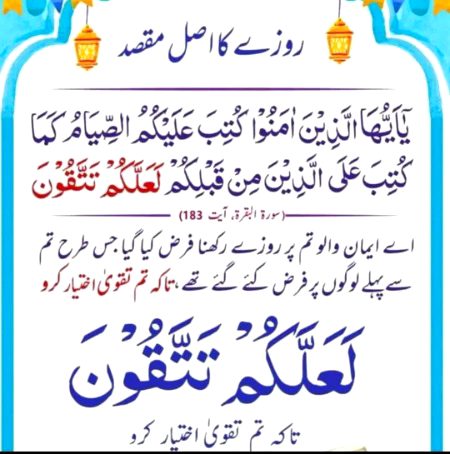 روزے کا اصل مقصد
يٰۤاَيُّهَا الَّذِيْنَ اٰمَنُوْا كُتِبَ عَلَيْكُمُ الصِّيَامُ كَمَا
كُتِبَ عَلَى الَّذِيْنَ مِنْ قَبْلِكُمْ لَعَلَّكُمْ تَتَّقُوْنَ
(سورة البقرة، آیت 183)
اے ایمان والو تم پر روزے رکھنا فرض کیا گیا جس طرح تم
سے پہلے لوگوں پر فرض کئے گئے تھے، تاکہ تم تقویٰ اختیار کرو
لَعَلَّكُمْ تَتَّقُوْنَ
تاکہ تم تقویٰ اختیار کرو